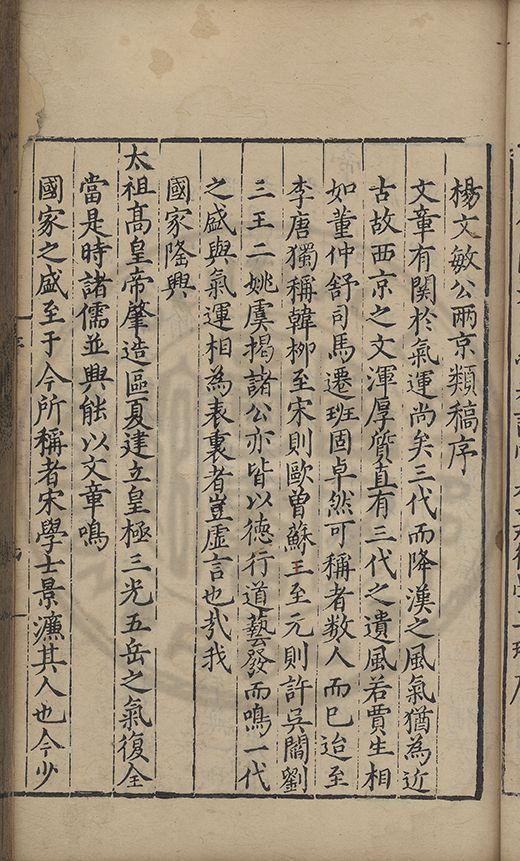 楊文敏公兩京類稿序
文章有關於氣運尚矣三代而降漢之風氣猶為近
古故西京之文渾厚質直有三代之遺風若賈生相
如董仲舒司馬遷班固卓然可稱者数人而已迨至
李唐獨稱韓柳至宋則歐曾蘇王至元則許吳閻劉
三王二姚虞揭諸公亦皆以德行道藝發而鳴一代
之盛與氣運相為表裏者豈虛言也㢤我
國家隆興
太祖髙皇帝肇造區夏建立皇極三光五岳之氣復全
當是時諸儒並興能以文章鳴
國家之盛至于今所稱者宋學士景濂其人也今少